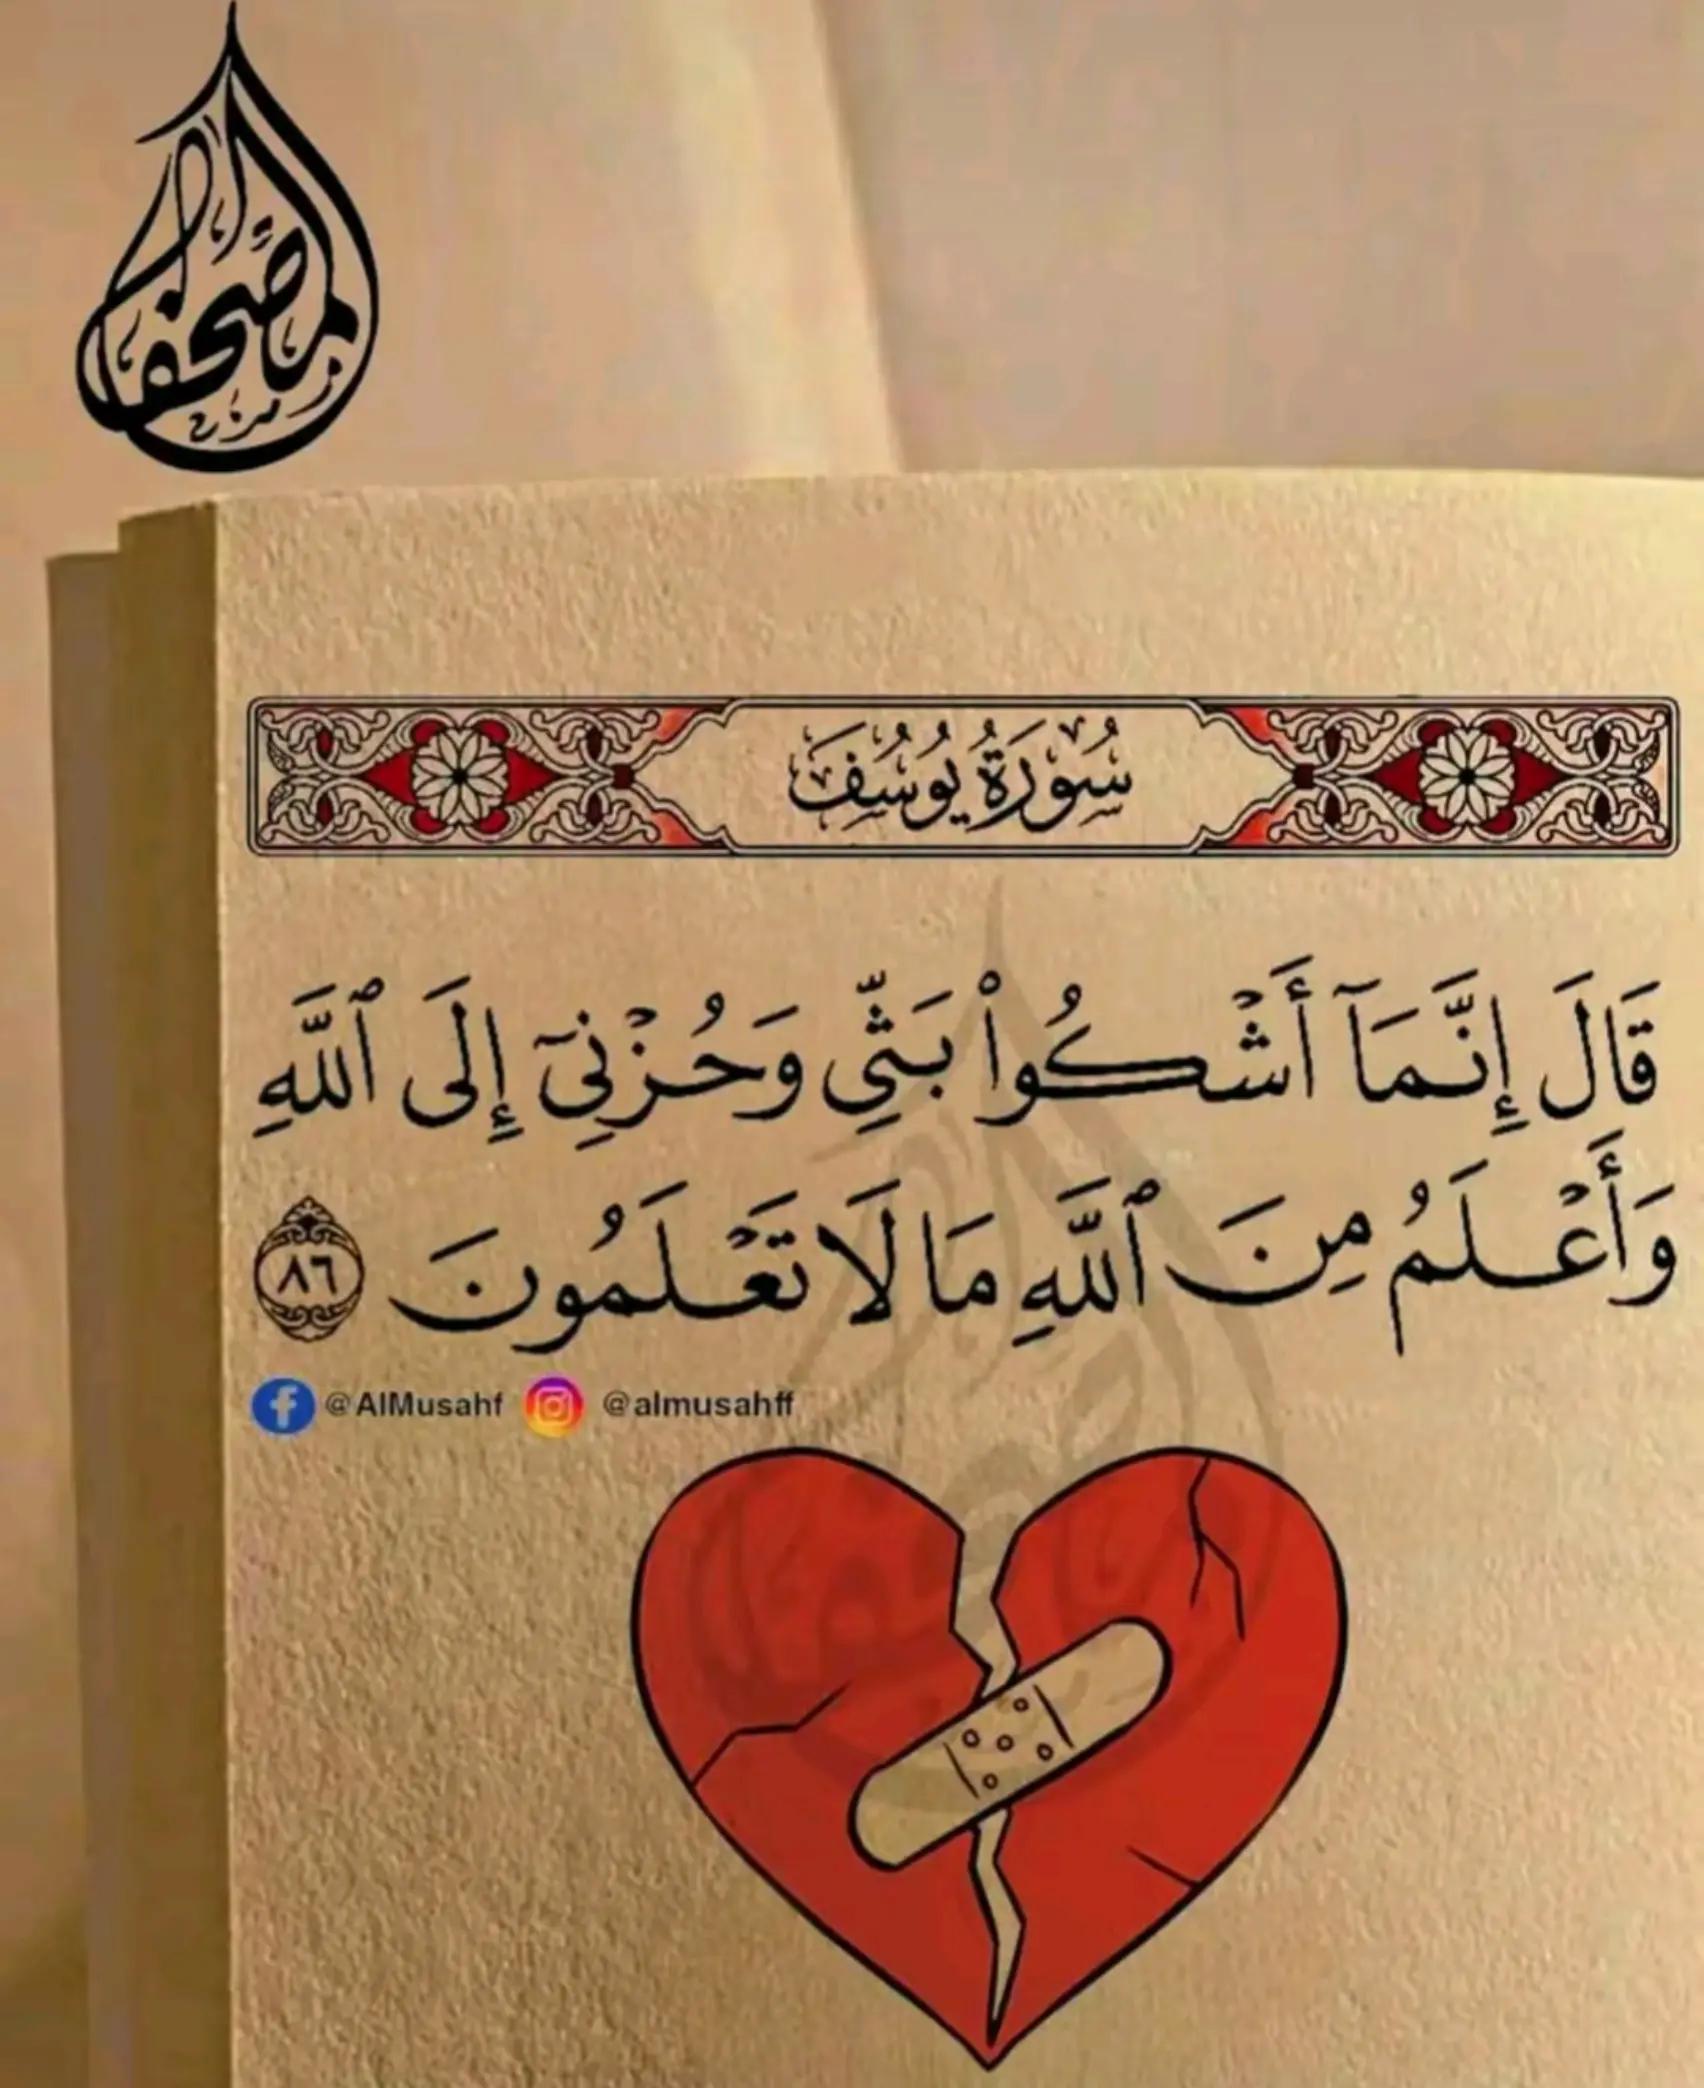 المصحف
سُورَةُ يُوسُفَ
قَالَ إِنَّمَآ أَشْكُواْ بَثِّي وَحُزْنِيٓ إِلَى ٱللَّهِ
وَأَعْلَمُ مِنَ ٱللَّهِ مَا لَا تَعْلَمُونَ ٨٦
@AlMusahf @almusahff